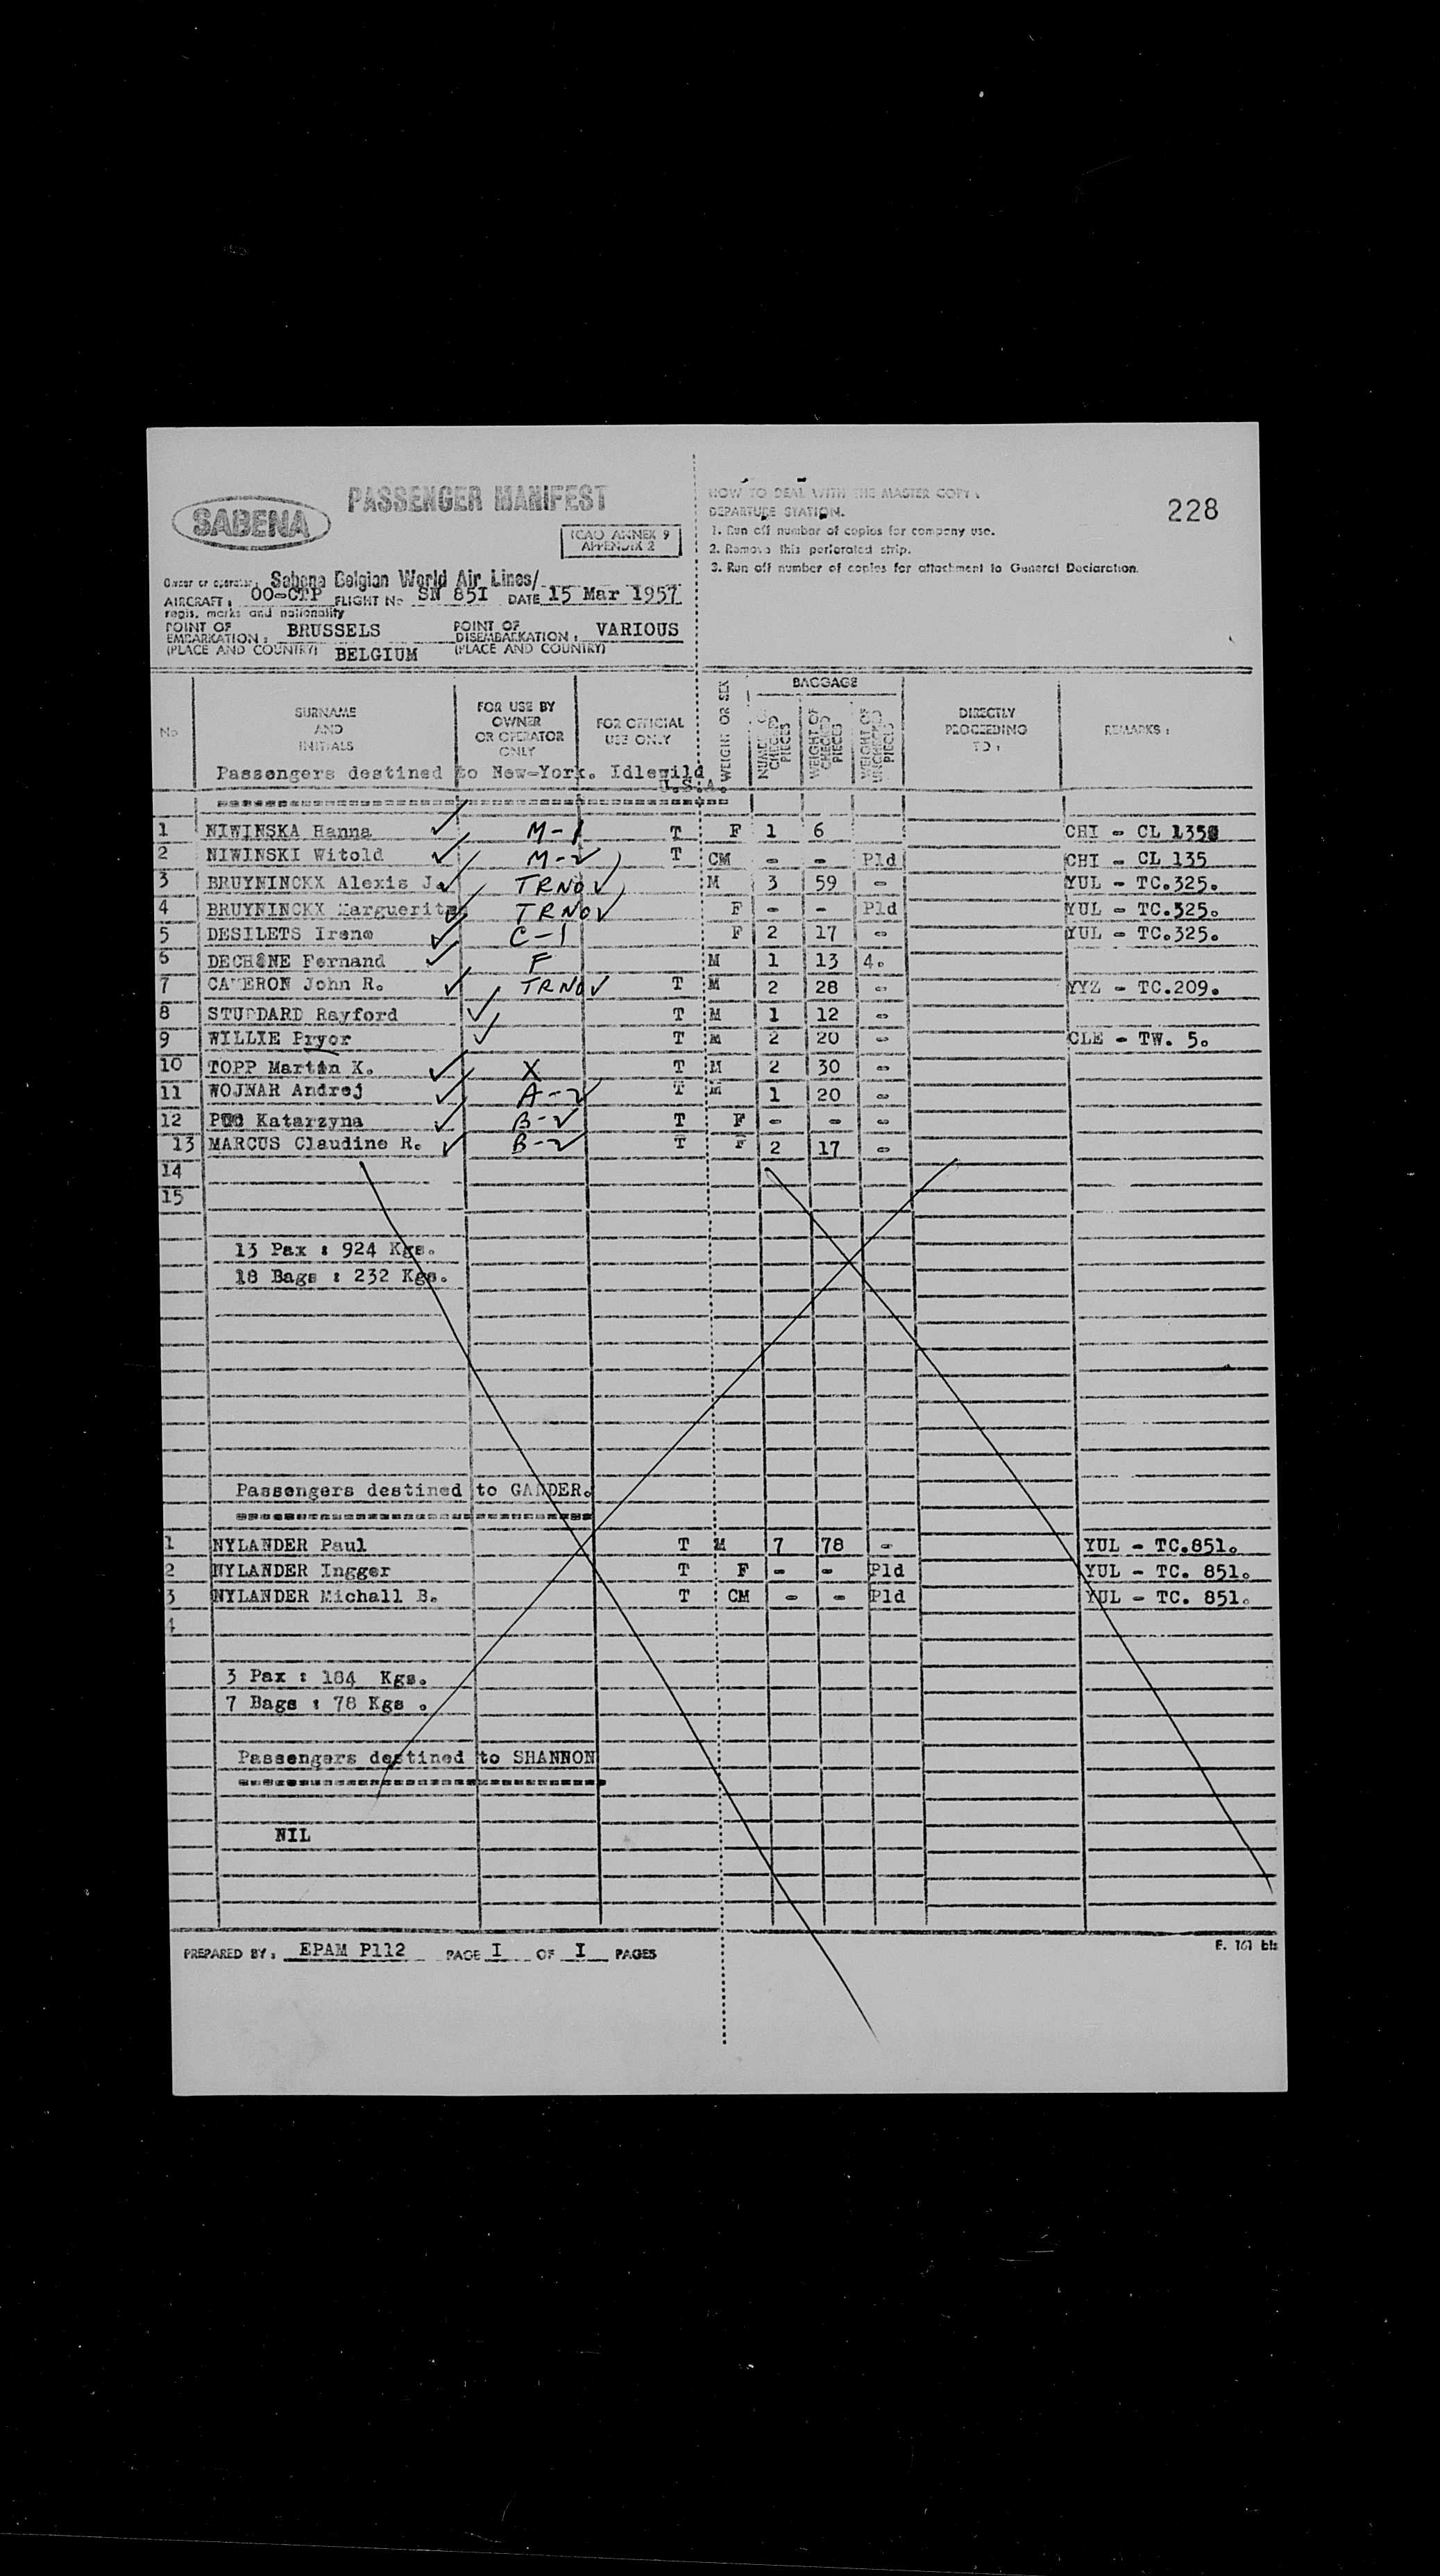 228
SABENA
PASSENGER MANIFEST
ICAO ANNEX 9
APPENDIX 2
HOW TO DEAL WITH THE MASTER COPY :
DEPARTURE STATION.
1. Run off number of copies for company use.
2. Remove this perforated strip.
3. Run off number of copies for attachment to General Declaration.
Owner or operator: Sabena Belgian World Air Lines/
AIRCRAFT : OO-CTP FLIGHT No SN 851 DATE 15 Mar 1957
regis. marks and nationality
POINT OF EMBARKATION : BRUSSELS POINT OF DISEMBARKATION : VARIOUS
(PLACE AND COUNTRY) BELGIUM (PLACE AND COUNTRY)
No SURNAME AND INITIALS FOR USE BY OWNER OR OPERATOR ONLY FOR OFFICIAL USE ONLY WEIGHT OR SEX BAGGAGE NUMBER OF CHECKED PIECES WEIGHT OF CHECKED PIECES WEIGHT OF UNCHECKED PIECES DIRECTLY PROCEEDING TO : REMARKS :
Passengers destined to New-York. Idlewild
U.S.A.
1 NIWINSKA Hanna M-1 T F 1 6 CHI - CL 135
2 NIWINSKI Witold M-2 T CM - - Pld CHI - CL 135
3 BRUYNINCKX Alexis J. TRNOV M 3 59 - YUL - TC.325.
4 BRUYNINCKX Marguerite TRNOV F - - Pld YUL - TC.325.
5 DESILETS Irene C-1 F 2 17 - YUL - TC.325.
6 DECHENE Fernand F M 1 13 4.
7 CAMERON John R. TRNOV T M 2 28 - YYZ - TC.209.
8 STUDDARD Rayford T M 1 12 -
9 WILLIE Pryor T M 2 20 - CLE - TW. 5.
10 TOPP Martin K. X T M 2 30 -
11 WOJNAR Andrej A-2 T M 1 20 -
12 Katarzyna B-2 T F - - -
13 MARCUS Claudine R. B-2 T F 2 17 -
14
15
13 Pax : 924 Kgs.
18 Bags : 232 Kgs.
Passengers destined to GANDER.
1 NYLANDER Paul T M 7 78 - YUL - TC.851.
2 NYLANDER Ingger T F - - Pld YUL - TC. 851.
3 NYLANDER Michall B. T CM - - Pld YUL - TC. 851.
4
3 Pax : 184 Kgs.
7 Bags : 78 Kgs .
Passengers destined to SHANNON
NIL
PREPARED BY : EPAM P112 PAGE I OF I PAGES
F. 161 bis